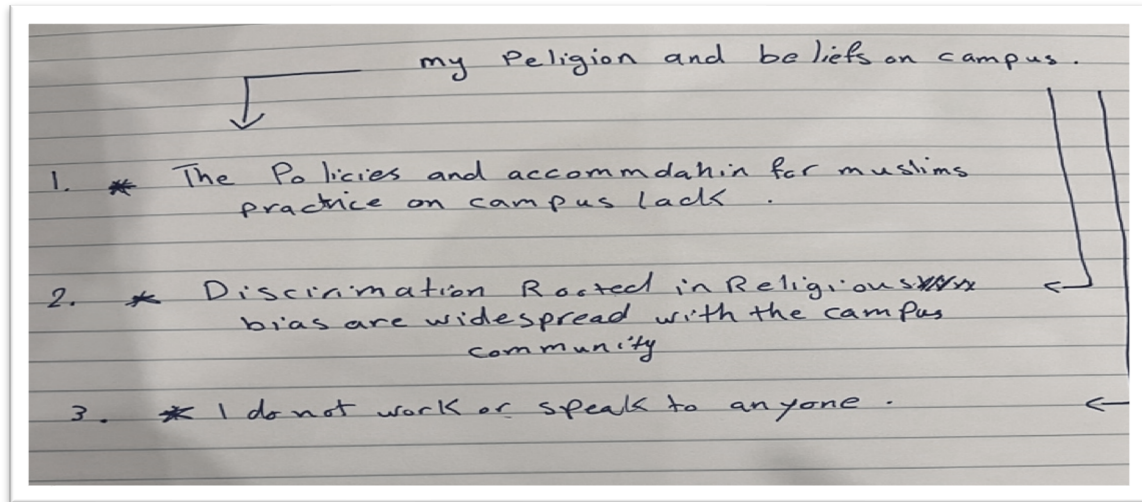 my Peligion and beliefs on campus.
1. * The Policies and accommdahin for muslims
practice on campus lack .
2. * Discirimation Rooted in Religious
bias are widespread with the campus
community
3. * I do not work or speak to anyone .